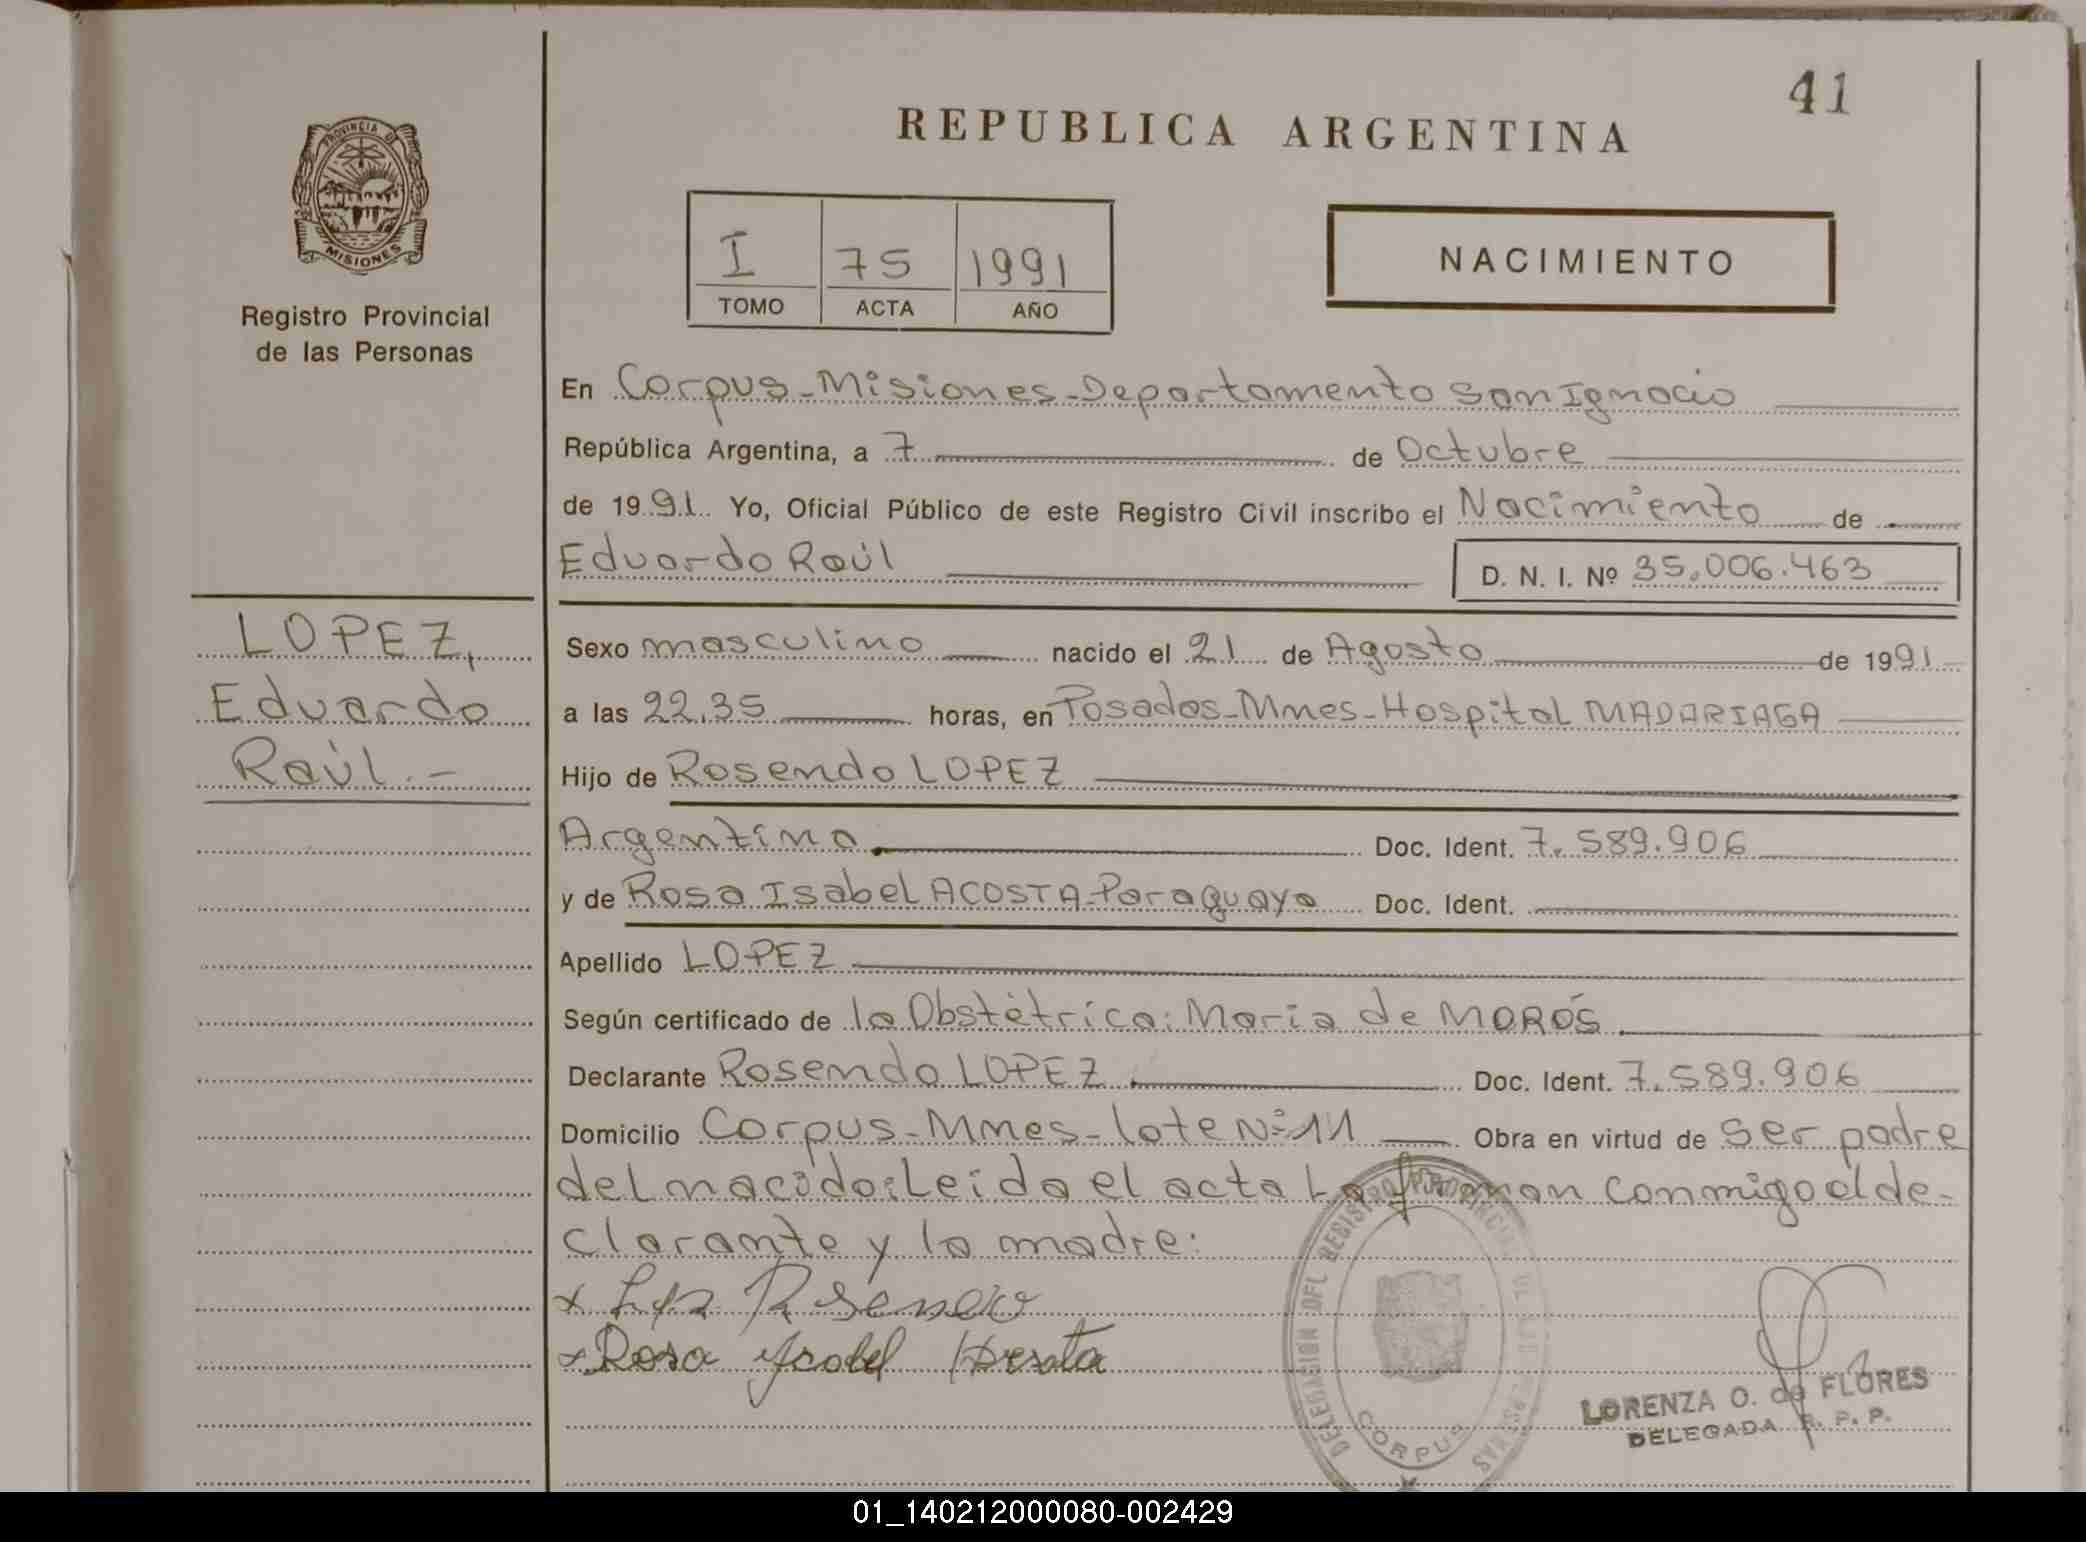 41
REPUBLICA ARGENTINA
PROVINCIA DE
MISIONES
Registro Provincial
de las Personas
I 75 1991
TOMO ACTA AÑO
NACIMIENTO
En Corpus-Misiones-Departamento San Ignacio
República Argentina, a 7 de Octubre
de 1991 Yo, Oficial Público de este Registro Civil inscribo el Nacimiento de
Eduardo Raúl D. N. I. Nº 35.006.463
LOPEZ,
Eduardo
Raúl.-
Sexo masculino nacido el 21 de Agosto de 1991
a las 22,35 horas, en Posadas-Mnes-Hospital MADARIAGA
Hijo de Rosendo LOPEZ
Argentino Doc. Ident. 7.589.906
y de Rosa Isabel ACOSTA-Paraguaya Doc. Ident.
Apellido LOPEZ
Según certificado de la Obstétrica: Maria de MOROS
Declarante Rosendo LOPEZ Doc. Ident. 7.589.906
Domicilio Corpus-Mnes-lote Nº 11 Obra en virtud de ser padre
del nacido: Leida el acta La firman conmigo el de-
clarante y la madre:
x Rosendo
x Rosa Ysabel
DELEGACION DEL REGISTRO PROVINCIAL DE LAS PERSONAS
CORPUS
LORENZA O. de FLORES
DELEGADA R. P. P.
01_140212000080-002429